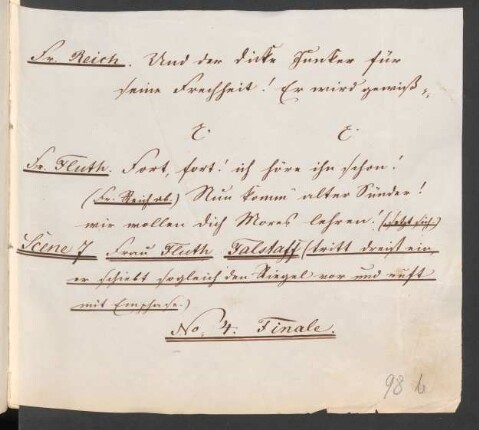 Fr. Reich. Und der dicke Junker für
seine Frechheit! Er wird gewiß „
Fr. Fluth. Fort, fort! ich höre ihn schon!
(Fr. Reich ab.) Nun komm' alter Sünder!
wir wollen dich Mores lehren! (setzt sich.)
Scene 7 Frau Fluth Falstaff (tritt dreist ein,
er schiebt sogleich den Riegel vor und ruft
mit Emphase.)
No. 4. Finale.
98 b